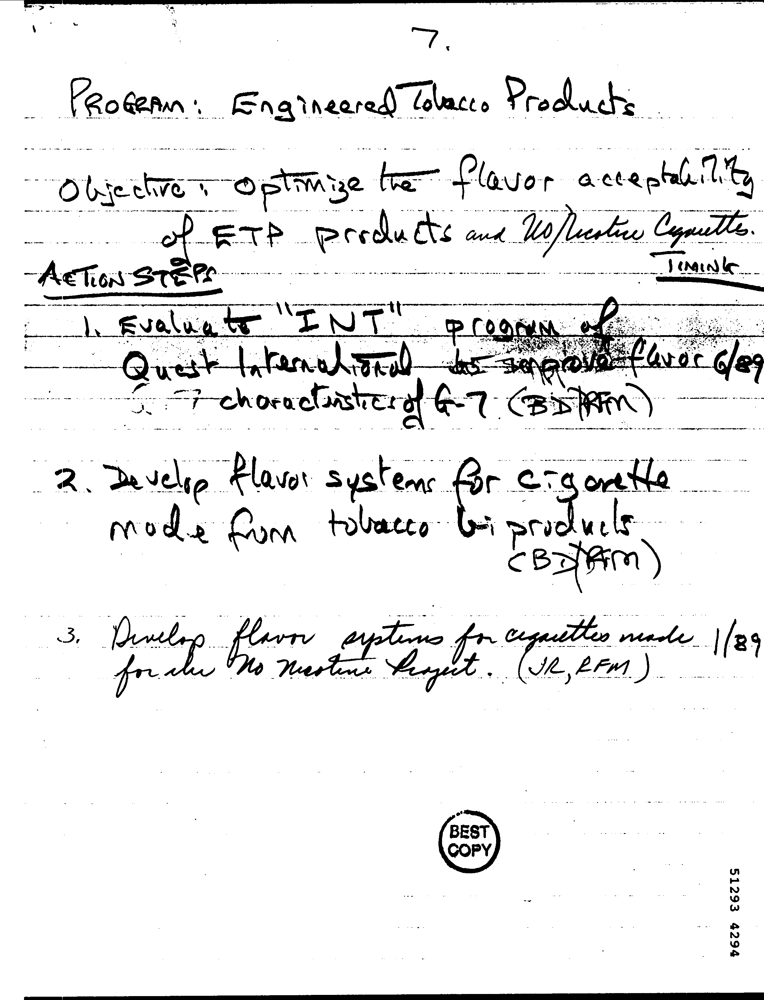 7.
PROGRAM: Engineered Tobacco Products
Objective: Optimize the flavor acceptability
of ETP products and No/Nicotine Cigarettes.
ACTION STEPS
TIMING
1. Evaluate "INT" program of
Quest International to improve flavor 6/89
characteristics of G-7 (BD/RFM)
2. Develop flavor systems for cigarette
made from tobacco bi products
(BD/RFM)
3. Develop flavor systems for cigarettes made 1/89
for the No Nicotine Project. (JR, RFM)
BEST
COPY
51293 4294